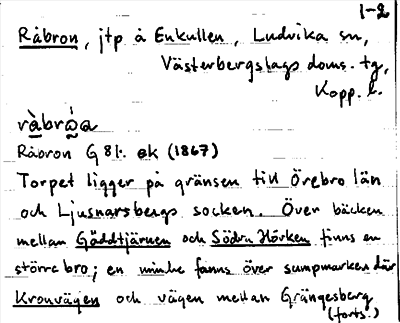 1-2
Råbron, jtp å Enkullen, Ludvika sn,
Västerbergslags doms. tg,
Kopp. l.
ràbrὼa
Råbron G 8 k. ek (1867)
Torpet ligger på gränsen till Örebro län
och Ljusnarsbergs socken. Över bäcken
mellan Gäddtjärnen och Södra Hörken finns en
större bro; en mindre fanns över sumpmarken där
Kronvägen och vägen mellan Grängesberg
(forts.)